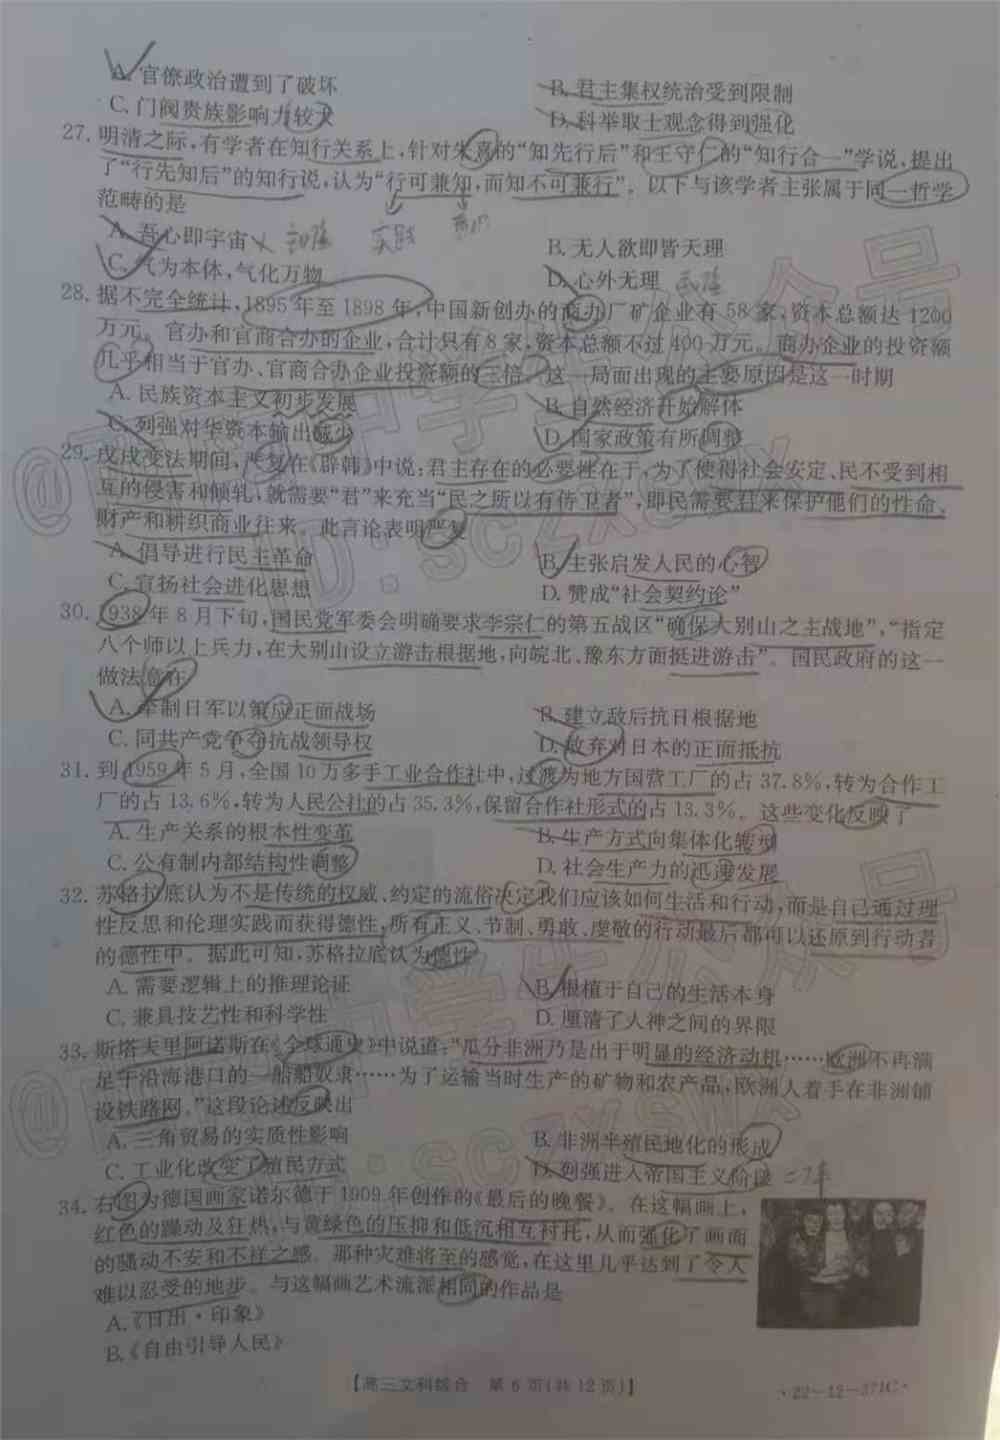 A. 官僚政治遭到了破坏
B. 君主集权统治受到限制
C. 门阀贵族影响力较大
D. 科举取士观念得到强化
27. 明清之际,有学者在知行关系上,针对朱熹的“知先行后”和王守仁的“知行合一”学说,提出
了“行先知后”的知行说,认为“行可兼知,而知不可兼行”。以下与该学者主张属于同一哲学
范畴的是
A. 吾心即宇宙
实践
B. 无人欲即皆天理
C. 气为本体,气化万物
D. 心外无理
28. 据不完全统计,1895年至1898年,中国新创办的商办厂矿企业有58家,资本总额达1200
万元。官办和官商合办的企业,合计只有8家,资本总额不过400万元。商办企业的投资额
几乎相当于官办、官商合办企业投资额的三倍。这一局面出现的主要原因是这一时期
A. 民族资本主义初步发展
B. 自然经济开始解体
C. 列强对华资本输出减少
D. 国家政策有所调整
29. 戊戌变法期间,严复在《辟韩》中说:君主存在的必要性在于,为了使得社会安定、民不受到相
互的侵害和倾轧,就需要“君”来充当“民之所以有侍卫者”,即民需要君来保护他们的性命、
财产和耕织商业往来。此言论表明严复
A. 倡导进行民主革命
B. 主张启发人民的心智
C. 宣扬社会进化思想
D. 赞成“社会契约论”
30. 1938年8月下旬,国民党军委会明确要求李宗仁的第五战区“确保大别山之主战地”,“指定
八个师以上兵力,在大别山设立游击根据地,向皖北、豫东方面挺进游击”。国民政府的这一
做法意在
A. 牵制日军以策应正面战场
B. 建立敌后抗日根据地
C. 同共产党争夺抗战领导权
D. 放弃对日本的正面抵抗
31. 到1959年5月,全国10万多手工业合作社中,过渡为地方国营工厂的占37.8%,转为合作工
厂的占13.6%,转为人民公社的占35.3%,保留合作社形式的占13.3%。这些变化反映了
A. 生产关系的根本性变革
B. 生产方式向集体化转型
C. 公有制内部结构性调整
D. 社会生产力的迅速发展
32. 苏格拉底认为不是传统的权威、约定的流俗决定我们应该如何生活和行动,而是自己通过理
性反思和伦理实践而获得德性,所有正义、节制、勇敢、虔敬的行动最后都可以还原到行动者
的德性中。据此可知,苏格拉底认为德性
A. 需要逻辑上的推理论证
B. 根植于自己的生活本身
C. 兼具技艺性和科学性
D. 厘清了人神之间的界限
33. 斯塔夫里阿诺斯在《全球通史》中说道:“瓜分非洲乃是出于明显的经济动机……欧洲不再满
足于沿海港口的一船船奴隶……为了运输当时生产的矿物和农产品,欧洲人着手在非洲铺
设铁路网。”这段论述反映出
A. 三角贸易的实质性影响
B. 非洲半殖民地化的形成
C. 工业化改变了殖民方式
D. 列强进入帝国主义阶段
34. 右图为德国画家诺尔德于1909年创作的《最后的晚餐》。在这幅画上,
红色的躁动及狂热,与黄绿色的压抑和低沉相互衬托,从而强化了画面
的骚动不安和不祥之感。那种灾难将至的感觉,在这里几乎达到了令人
难以忍受的地步。与这幅画艺术流派相同的作品是
A.《日出·印象》
B.《自由引导人民》
【高三文科综合 第6页(共12页)】
·22-12-371C·